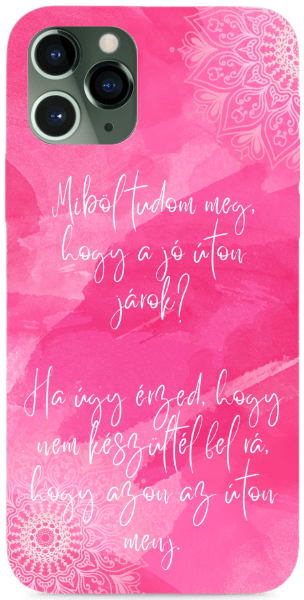 Miből tudom meg,
hogy a jó úton
járok?
Ha úgy érzed, hogy
nem készültél fel rá,
hogy azon az úton
menj.